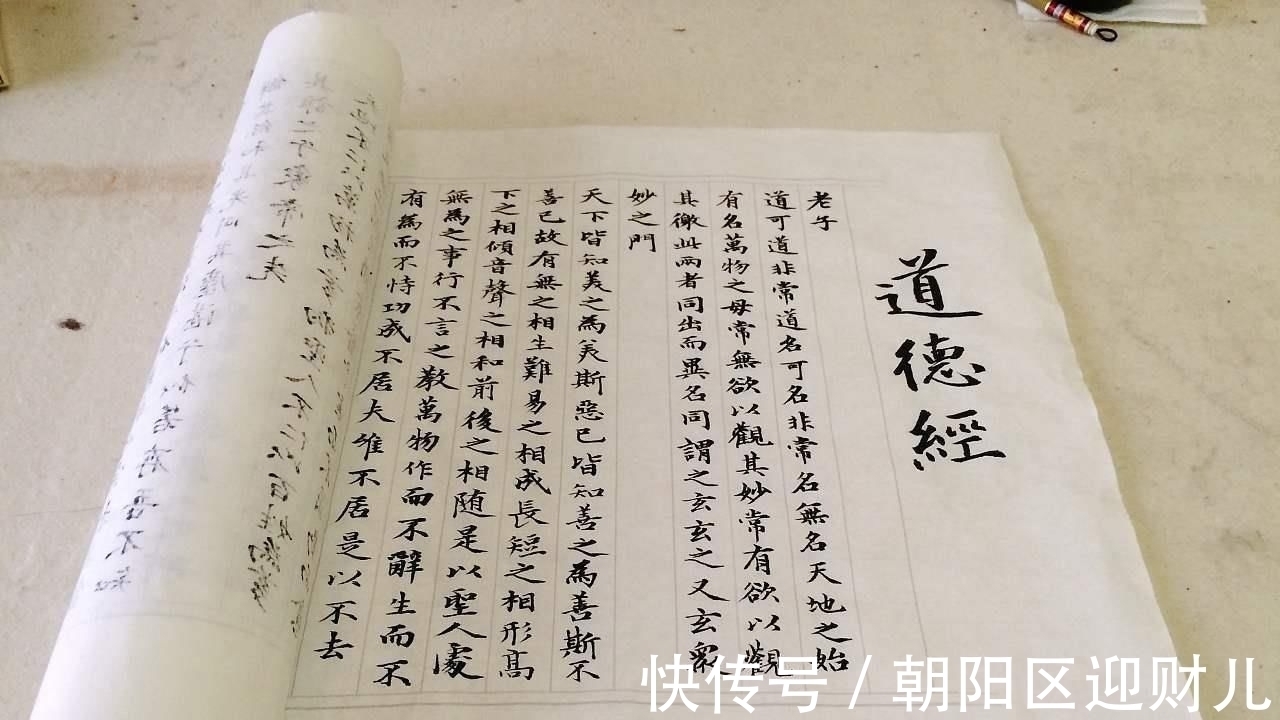 道德經
老子
道可道非常道名可名非常名無名天地之始
有名萬物之母常無欲以觀其妙常有欲以觀
其徼此兩者同出而異名同謂之玄玄之又玄眾
妙之門
天下皆知美之為美斯惡已皆知善之為善斯不
善已故有無之相生難易之相成長短之相形高
下之相傾音聲之相和前後之相隨是以聖人處
無為之事行不言之教萬物作而不辭生而不
有為而不恃功成不居夫唯不居是以不去
快传号/朝阳区迎财儿